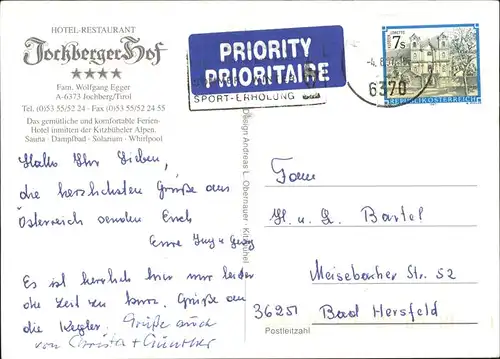 HOTEL-RESTAURANT
Jochberger Hof
Fam. Wolfgang Egger
A-6373 Jochberg/Tirol
Tel. (0)53 55/52 24 - Fax (0)53 55/52 24 55
Das gemütliche und komfortable Ferien-
Hotel inmitten der Kitzbüheler Alpen.
Sauna · Dampfbad · Solarium · Whirlpool
PRIORITY
PRIORITAIRE
SPORT-ERHOLUNG
6370
7s
REPUBLIK ÖSTERREICH
Hallo Ihr Lieben,
die herzlichsten Grüße aus
Österreich senden Euch
Eure Inge u Georg
Es ist herrlich hier nur leider
die Zeit zu kurz. Grüße an
die Kegler. Grüße auch
von Christa + Günther
Design Andreas L. Obernauer · Kitzbühel
Fam
H. u. L. Bartel
Meisebacher Str. 52
36251 Bad Hersfeld
Postleitzahl